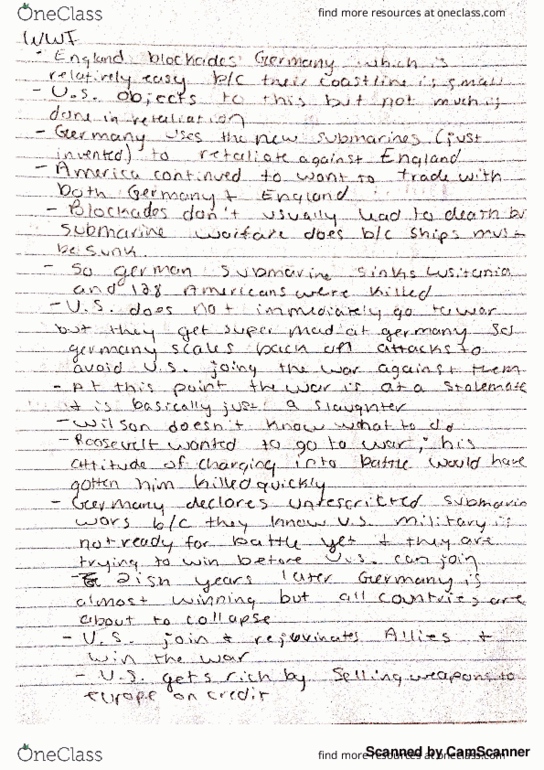 OneClass
find more resources at oneclass.com
WWI
- England blockades Germany which is
relatively easy b/c their coastline is small
- U.S. objects to this but not much is
done in retaliation
- Germany uses the new submarines (just
invented) to retaliate against England
- America continued to want to trade with
both Germany + England
- Blockades don't usually lead to death but
submarine warfare does b/c ships must
be sunk.
- So german submarine sinks Lusitania
and 128 Americans were killed
- U.S. does not immediately go to war
but they get super mad at germany so
germany scales back on attacks to
avoid U.S. joing the war against them
- At this point the war is at a stalemate
it is basically just a slaughter
- Wilson doesn't know what to do
- Roosevelt wanted to go to war, his
attitude of charging into battle would have
gotten him killed quickly
- Germany declares unrescricted submarin
wars b/c they know U.S. military is
not ready for battle yet + they are
trying to win before U.S. can join
- 2ish years later Germany is
almost winning but all countries are
about to collapse
- U.S. join + rejuvinates Allies +
win the war
- U.S. gets rich by selling weapons to
europe on credit
OneClass
find more resources at oneclass.com
Scanned by CamScanner